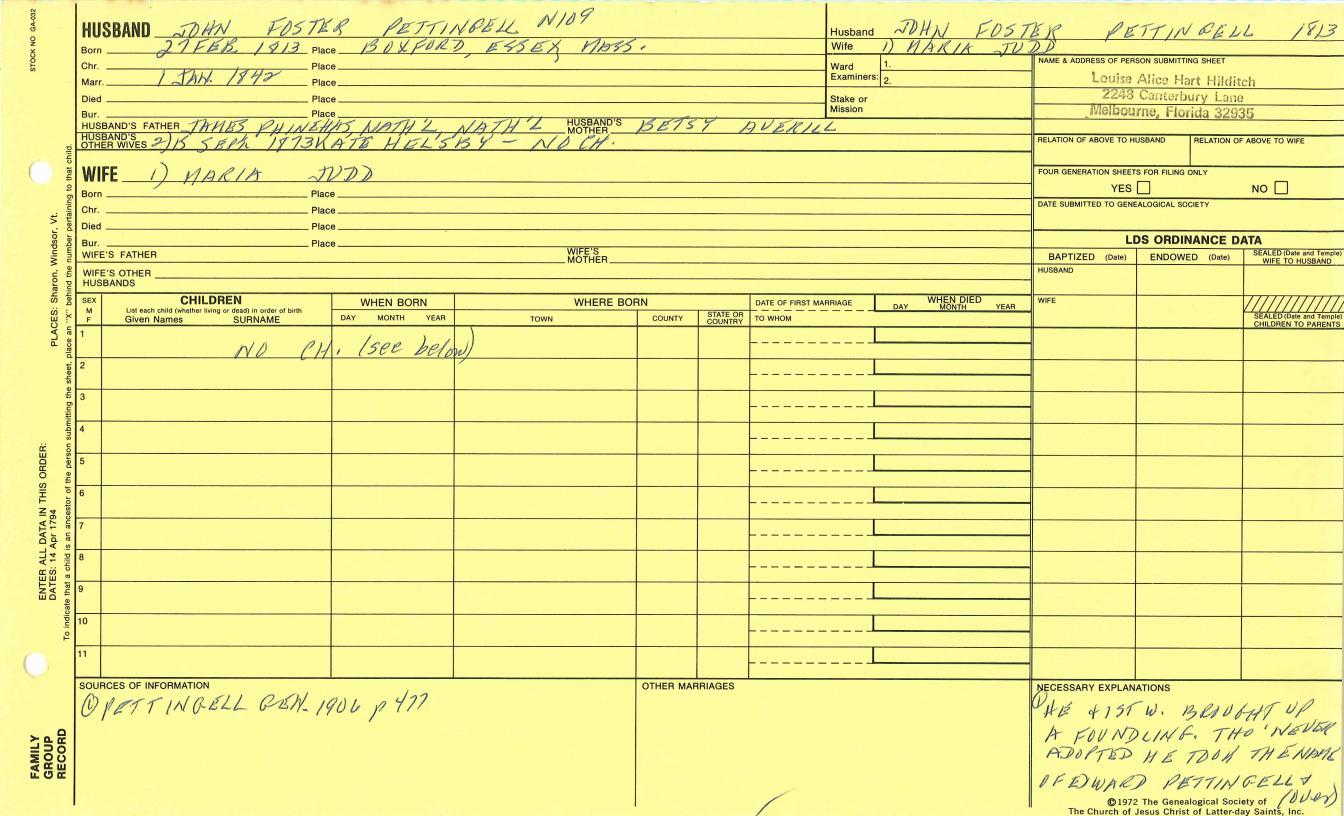 STOCK NO GA-032
HUSBAND JOHN FOSTER PETTINGELL N109
Born 27 FEB 1813 Place BOXFORD, ESSEX MASS.
Chr. Place
Marr. 1 JAN. 1842 Place
Died Place
Bur. Place
HUSBAND'S FATHER JAMES PHINEHAS, NATH'L, NATH'L HUSBAND'S MOTHER BETSY AVERILL
HUSBAND'S OTHER WIVES 2) 15 SEPT. 1873 KATE HELSBY - NO CH.
Husband JOHN FOSTER PETTINGELL 1813
Wife 1) MARIA JUDD
Ward Examiners: 1.
2.
Stake or Mission
NAME & ADDRESS OF PERSON SUBMITTING SHEET
Louise Alice Hart Hilditch
2243 Canterbury Lane
Melbourne, Florida 32935
RELATION OF ABOVE TO HUSBAND RELATION OF ABOVE TO WIFE
FOUR GENERATION SHEETS FOR FILING ONLY
YES NO
DATE SUBMITTED TO GENEALOGICAL SOCIETY
WIFE 1) MARIA JUDD
Born Place
Chr. Place
Died Place
Bur. Place
WIFE'S FATHER WIFE'S MOTHER
WIFE'S OTHER HUSBANDS
LDS ORDINANCE DATA
BAPTIZED (Date) ENDOWED (Date) SEALED (Date and Temple) WIFE TO HUSBAND
HUSBAND
WIFE
SEALED (Date and Temple) CHILDREN TO PARENTS
SEX M F
CHILDREN
List each child (whether living or dead) in order of birth
Given Names SURNAME
WHEN BORN
DAY MONTH YEAR
WHERE BORN
TOWN COUNTY STATE OR COUNTRY
DATE OF FIRST MARRIAGE
TO WHOM
WHEN DIED
DAY MONTH YEAR
1 NO CH. (see below)
2
3
4
5
6
7
8
9
10
11
SOURCES OF INFORMATION
① PETTINGELL GEN. 1906 p 477
OTHER MARRIAGES
NECESSARY EXPLANATIONS
① HE & 1ST W. BROUGHT UP
A FOUNDLING. THO' NEVER
ADOPTED HE TOOK THE NAME
OF EDWARD PETTINGELL &
(over)
©1972 The Genealogical Society of
The Church of Jesus Christ of Latter-day Saints, Inc.
FAMILY GROUP RECORD
ENTER ALL DATA IN THIS ORDER:
DATES: 14 Apr 1794
PLACES: Sharon, Windsor, Vt.
To indicate that a child is an ancestor of the person submitting the sheet, place an "X" behind the number pertaining to that child.